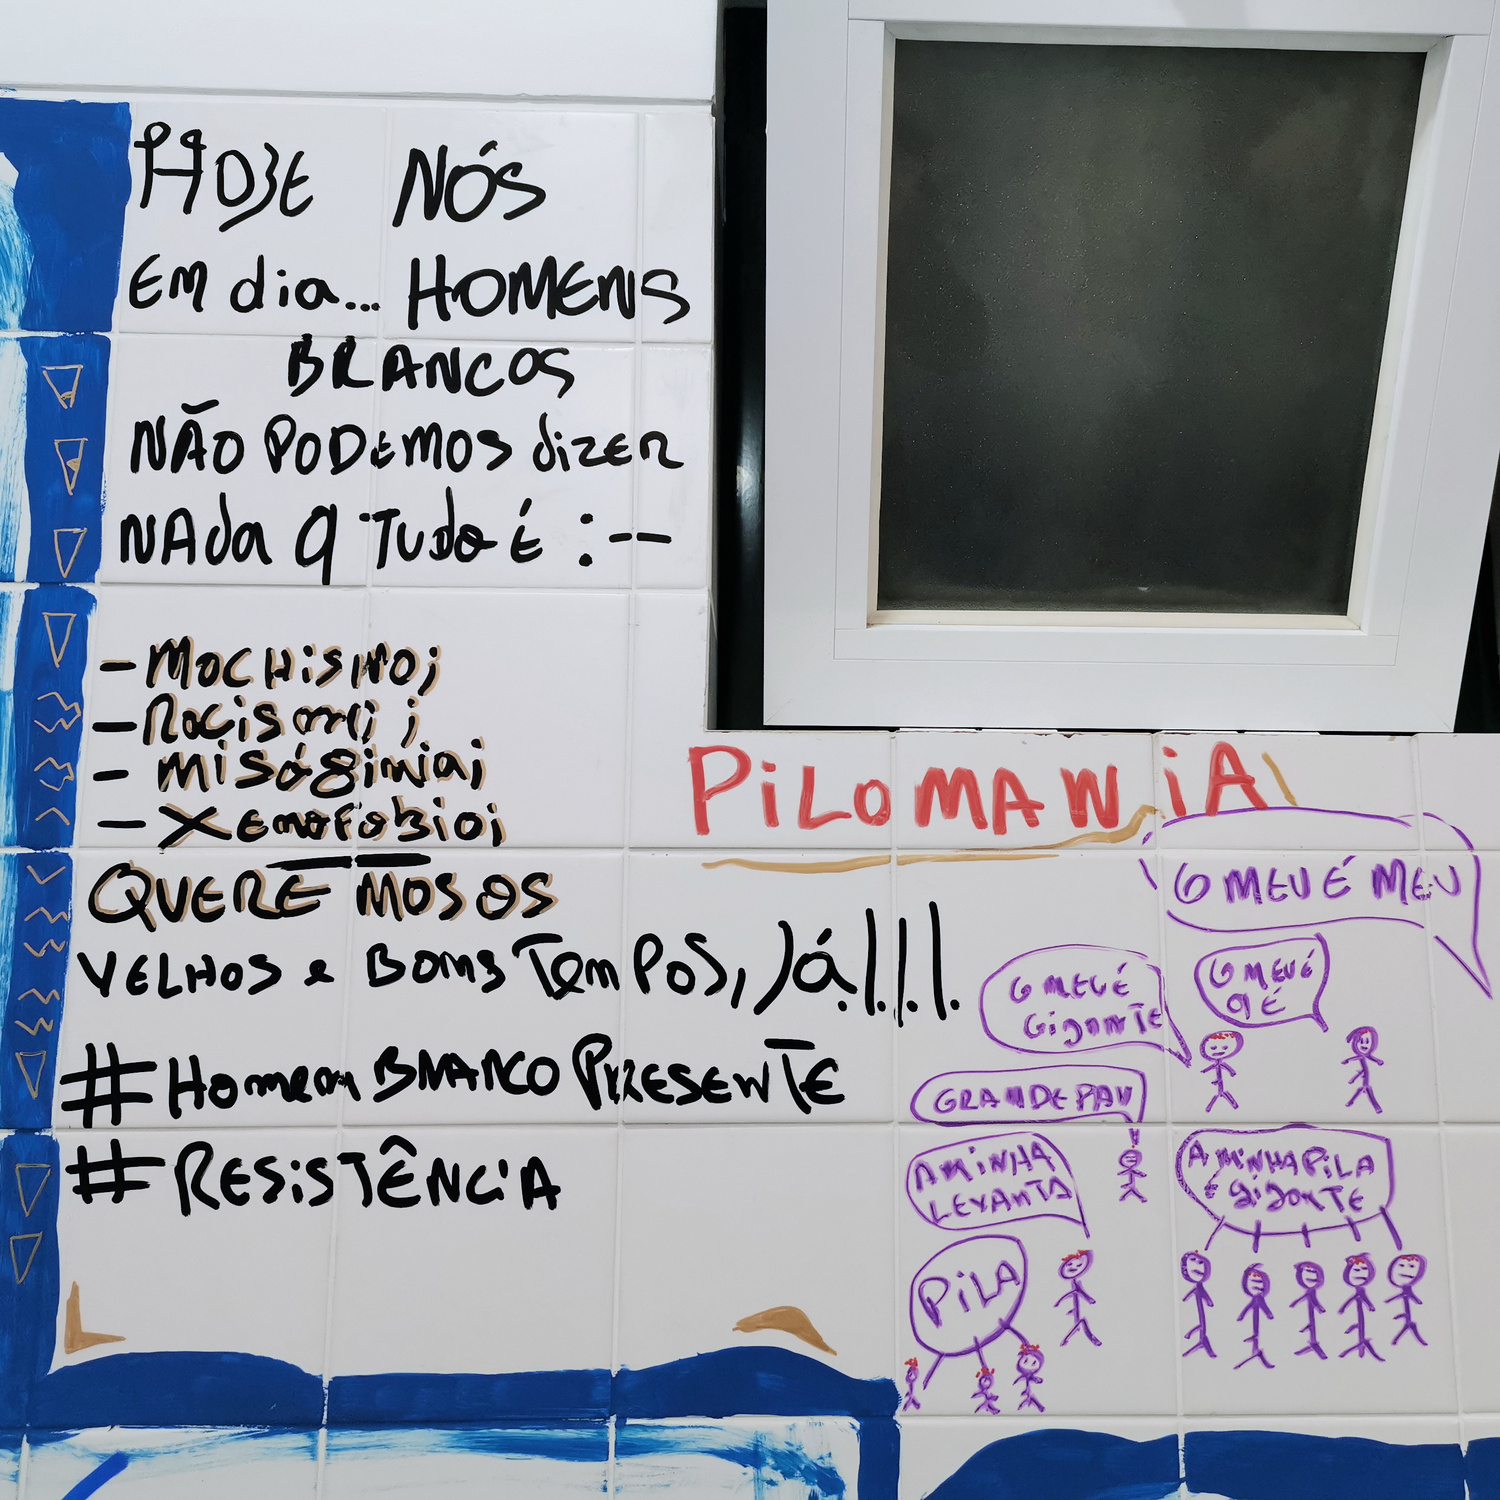 HOJE NÓS
EM dia... HOMENS
BRANCOS
NÃO PODEMOS dizer
NAda q TUdo É :--
- MACHISMO;
- RACISMO;
- MISÓGINIA;
- XENOFOBIA;
QUEREMOS OS
VELHOS e BONS TEMPOS, JÁ!!!.
#HOMEM BRANCO PRESENTE
#RESISTÊNCIA
PILOMANIA
O MEU É MEU
O MEU É
GIGANTE
O MEU É
Q É
GRANDE PAU
A MINHA
LEVANTA
A MINHA PILA
É GIGANTE
PILA